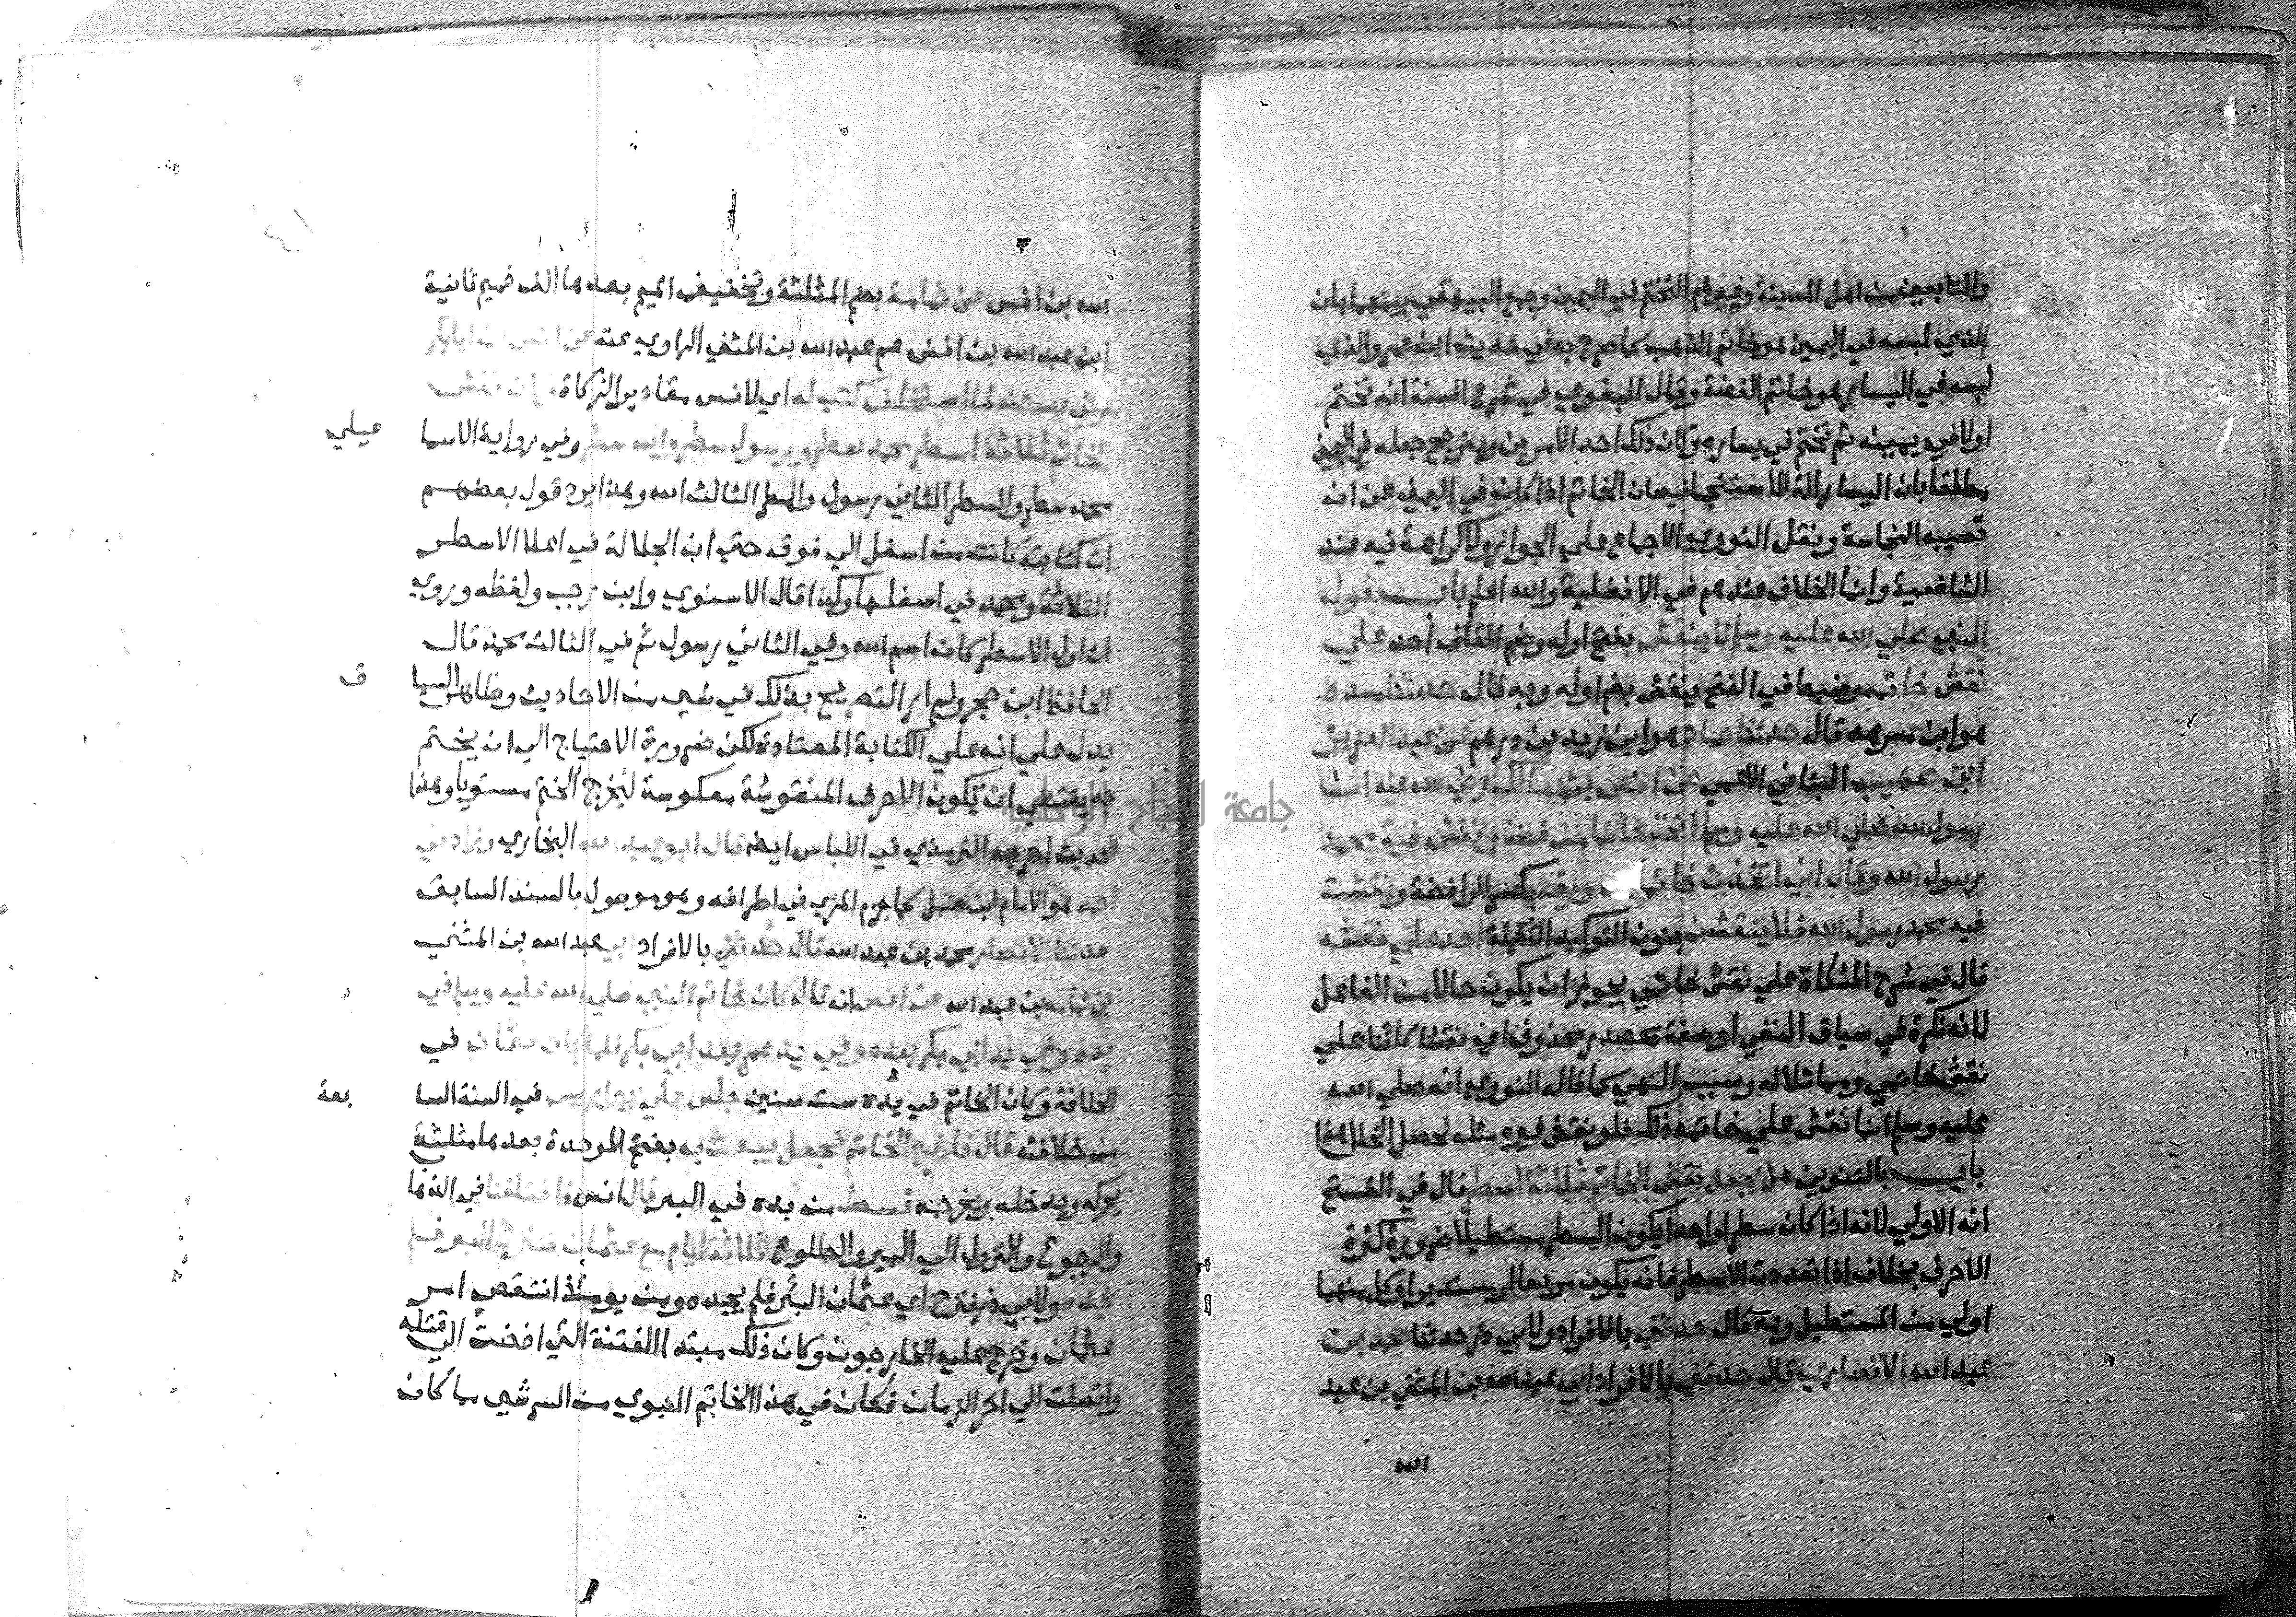 والتابعين من اهل المدينة وغيرهم التختم في اليمين وجمع البيهقي بينهما بان
الذي لبسه في اليمين هو خاتم الذهب كما صرح به في حديث ابن عمر والذي
لبسه في اليسار هو خاتم الفضة وقال البغوي في شرح السنة انه تختم
اولا في يمينه ثم تختم في يساره وكان ذلك احد الامرين ويترجح جعله في اليمين
مطلقا بان اليسار الة للاستنجا فيصان الخاتم اذا كان في اليمين عن ان
تصيبه النجاسة ونقل النووي الاجماع علي الجواز ولا كراهة فيه عند
الشافعية وانما الخلاف عندهم في الافضلية والله اعلم باب قول
النبي صلي الله عليه وسلم لا ينقش بفتح اوله وضم القاف احد علي
نقش خاتمه وضبطه في الفتح ينقش بضم اوله وبه قال حدثنا مسدد
هو ابن مسرهد قال حدثنا حماد هو ابن زيد بن درهم عن عبد العزيز
ابن صهيب البناني الاعمي عن انس بن مالك رضي الله عنه ان
رسول الله صلي الله عليه وسلم اتخذ خاتما من فضة ونقش فيه محمد
رسول الله وقال اني اتخذت خاتما ورق بكسر الرا فضة ونقشت
فيه محمد رسول الله فلا ينقشن بنون التوكيد الثقيلة احد علي نقشه
قال في شرح المشكاة علي نقش خاتمي يجوز ان يكون حالا من الفاعل
لانه نكرة في سياق النفي او صفة مصدر محذوف اي نقشا كائنا علي
نقش خاتمي ومماثلا له وسبب النهي كما قاله النووي انه صلي الله
عليه وسلم انما نقش علي خاتمه ذلك فلو نقش غيره مثله لحصل الخلل هذا
باب بالتنوين هل يجعل نقش الخاتم ثلاثة اسطر قال في الفتح
انه الاولي لانه اذا كان سطرا واحدا يكون السطر مستطيلا ضرورة كثرة
الاحرف بخلاف اذا تعددت الاسطر فانه يكون مربعا او مستديرا وكل منهما
اولي من المستطيل وبه قال حدثني بالافراد ولابي ذر حدثنا محمد بن
عبد الله الانصاري قال حدثني بالافراد ابي عبد الله بن المثني بن عبد
الله
الله بن انس عن ثمامة بضم المثلثة وتخفيف الميم بعدها الف فميم ثانية
ابن عبد الله بن انس عم عبد الله بن المثني الراوي عنه عن انس ان ابا بكر
رضي الله عنه لما استخلف كتب له اي لانس مقادير الزكاة وكان نقش
الخاتم ثلاثة اسطر محمد سطر ورسول سطر والله سطر وفي رواية الاسما عيلي
محمد سطر والسطر الثاني رسول والسطر الثالث الله وهذا يرد قول بعضهم
ان كتابته كانت من اسفل الي فوق حتي ان الجلالة في اعلا الاسطر
الثلاثة ومحمد في اسفلها وكذا قال الاسنوي وابن رجب ولفظه وروي
ان اول الاسطر كان اسم الله وفي الثاني رسول ثم في الثالث محمد قال
الحافظ ابن حجر ولم ار التصريح بذلك في شي من الاحاديث وظاهر السيا ق
يدل علي انه علي الكتابة المعتادة لكن ضرورة الاحتياج الي ان يختم
به يقتضي ان تكون الاحرف المنقوشة معكوسة ليخرج الختم مستويا وهذا
الحديث اخرجه الترمذي في اللباس ايضا قال ابو عبد الله البخاري وزادني
احمد هو الامام ابن حنبل كما جزم المزي في اطرافه وهو موصول بالسند السابق
حدثنا الانصاري محمد بن عبد الله قال حدثني بالافراد ابي عبد الله بن المثني
عن ثمامة بن عبد الله عن انس انه قال كان خاتم النبي صلي الله عليه وسلم في
يده وفي يد ابي بكر بعده وفي يد عمر بعد ابي بكر فلما كان عثمان في
الخلافة وكان الخاتم في يده ست سنين جلس علي بير اريس في السنة السا بعة
من خلافته قال فاخرج الخاتم فجعل يعبث به بفتح الموحدة بعدها مثلثة
يحركه ويدخله ويخرجه فسقط من يده في البير قال انس فاختلفنا في الذها
والرجوع والنزول الي البير والطلوع ثلاثة ايام مع عثمان فننزح البير فلم
نجده ولابي ذر فنزح اي عثمان البئر فلم يجده ومن يومئذ انتقض امر
عثمان وخرج عليه الخارجون وكان ذلك مبتدا الفتنة التي افضت الي قتله
واتصلت الي اخر الزمان فكان في هذا الخاتم النبوي من السر شي مما كان
جامعة النجاح الوطنية